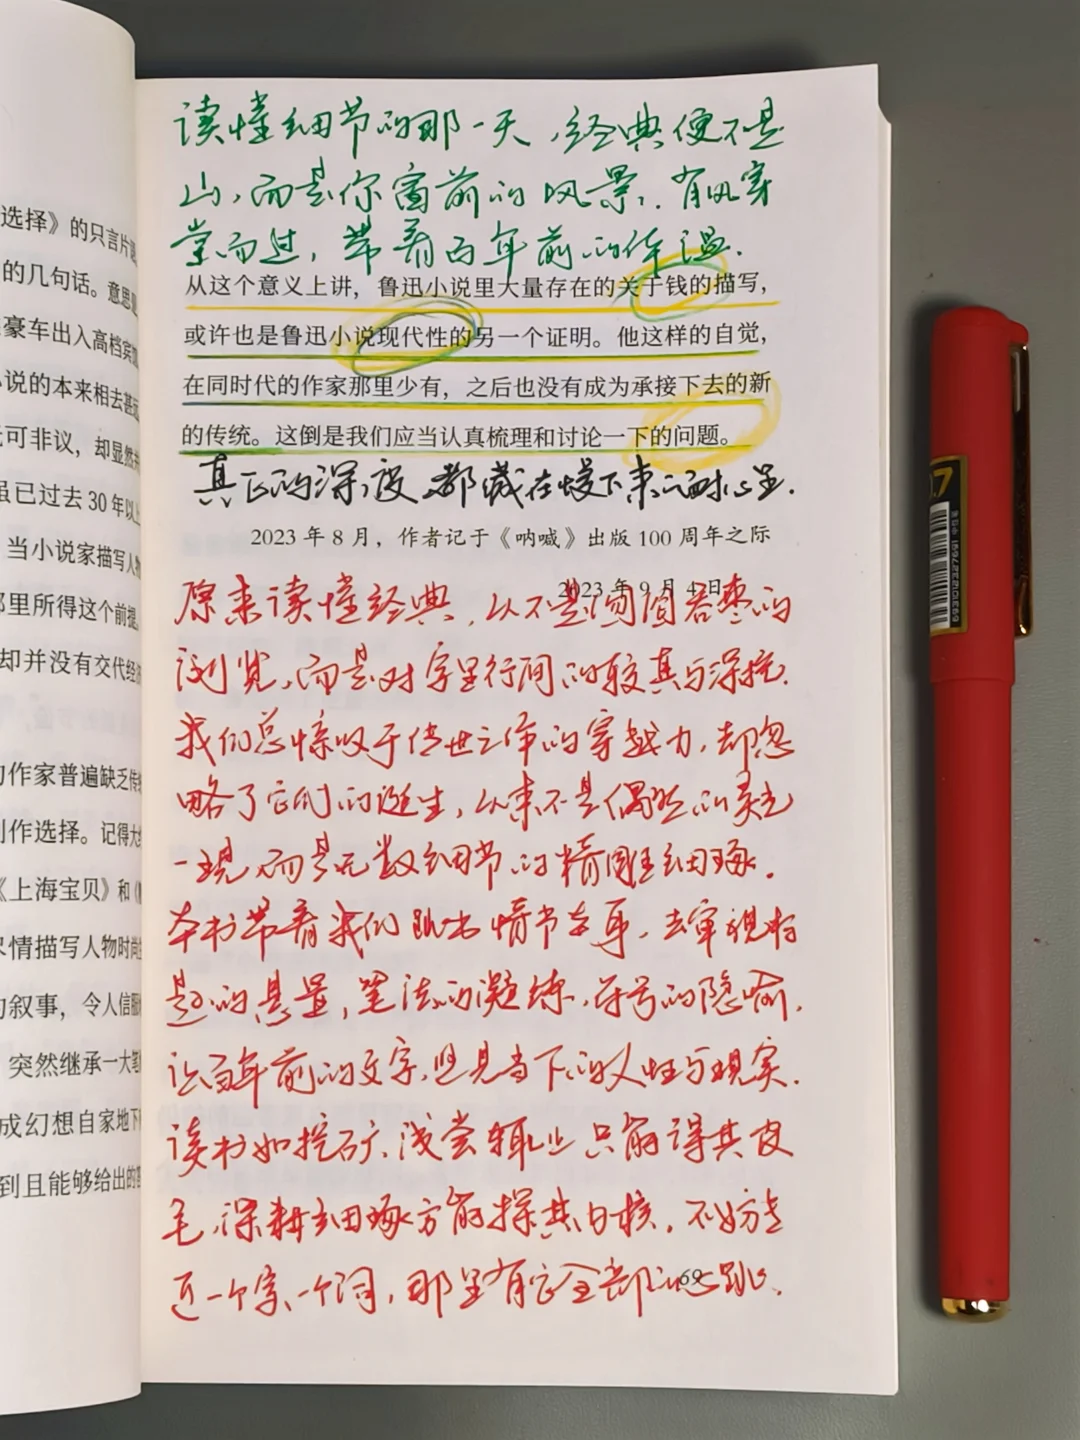 选择》的只言片语
的几句话。意思
豪车出入高档宾
说的本来相去甚远
可非议，却显然
虽已过去30年以上
当小说家描写人物
那里所得这个前提
却并没有交代经济
的作家普遍缺乏传统
创作选择。记得大
《上海宝贝》和
尽情描写人物时尚
的叙事，令人信服
突然继承一大笔
成幻想自家地下
到且能够给出的
读懂细节的那一天，经典便不是
山，而是你窗前的风景，有风穿
堂而过，带着百年前的体温．
从这个意义上讲，鲁迅小说里大量存在的关于钱的描写，
或许也是鲁迅小说现代性的另一个证明。他这样的自觉，
在同时代的作家那里少有，之后也没有成为承接下去的新
的传统。这倒是我们应当认真梳理和讨论一下的问题。
真正的深度，都藏在慢下来的耐心里．
2023 年 8 月，作者记于《呐喊》出版 100 周年之际
2023 年 9 月 4 日
原来读懂经典，从不是囫囵吞枣的
浏览，而是对字里行间的较真与深挖．
我们总惊叹于传世之作的穿越力，却忽
略了它们的诞生，从来不是偶然的灵光
一现，而是无数细节的精雕细琢．
本书带着我们跳出情节本身，去审视标
题的悬置，笔法的凝练，符号的隐喻，
让百年前的文字，照见当下的人性与现实．
读书如挖矿，浅尝辄止只能得其皮
毛，深耕细琢方能探其内核，不妨走
近一个字、一个词，那里有它全部的心跳．
69
0.7
6931012322751